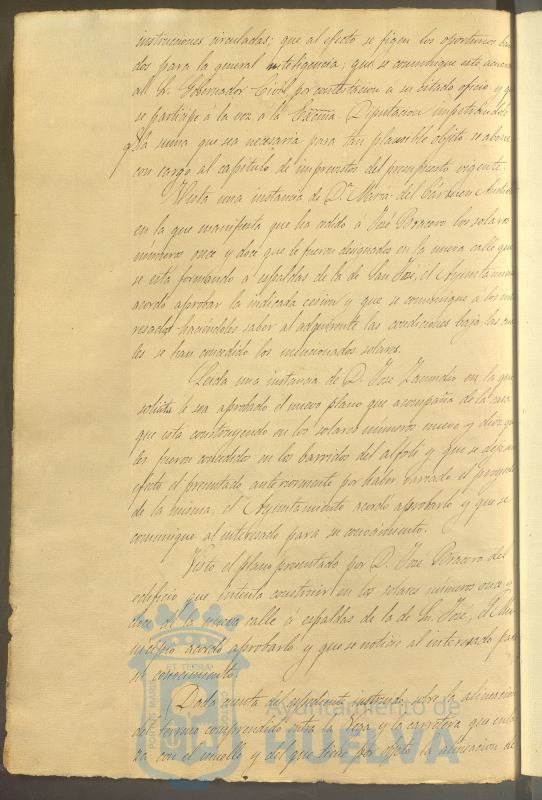 instrucciones circuladas; que al efecto se fijen los oportunos ban
dos para la general inteligencia; que se comunique este acuerdo
al Sr. Gobernador Civil por contestacion a su citado oficio y que
se participe á la vez á la Excma. Diputacion impetrandole
qe. la suma que sea necesaria para tan plausible objeto se abone
con cargo al capitulo de imprevistos del presupuesto vigente.
Vista una instancia de Dª Maria del
en la que manifiesta que ha cedido a José Bracero los solares
números once y doce que le fueron designados en la nueva calle que
se está formando a espaldas de la de San José, el Ayuntamiento
acordó aprobar la indicada cesión y que se comunique a los inte
resados haciéndoles saber al adquirente las condiciones bajo las cua
les se han concedido los mencionados solares.
Leida una instancia de D. José en la que
solicita le sea aprobado el nuevo plano que acompaña de la casa
que está construyendo en los solares números nueve y diez que
les fueron concedidos en los barridos del alfolí y que se deje sin
efecto el presentado anteriormente por haber variado el proyecto
de la misma, el Ayuntamiento acordó aprobarlo y que se
comunique al interesado para su conocimiento.
Visto el plano presentado por D. José Bracero del
edificio que intenta construir en los solares números once y
doce de la nueva calle á espaldas de la de Sn. José, el Mu
nicipio acordó aprobarlo y que se noticie al interesado para
su conocimiento.
Dada cuenta del espediente instruido sobre la alineacion
del terreno comprendido entre la Vega y la carretera que enla
za con el muelle y del que tiene por objeto la alineacion de
PORTUS MARIS
ET TERRAE
CUSTODIA
Ayuntamiento de
HUELVA